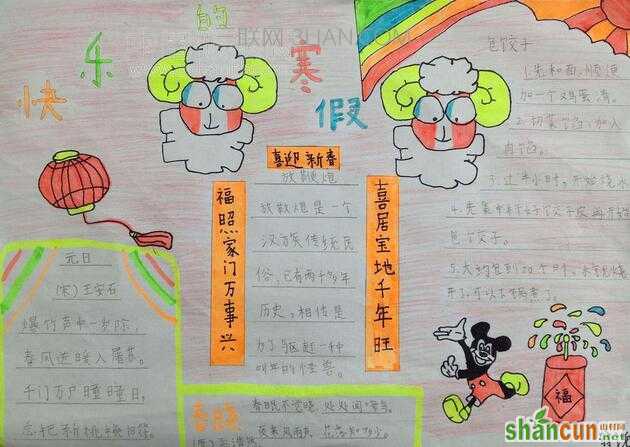 快乐的寒假
元日
(宋)王安石
爆竹声中一岁除，
春风送暖入屠苏。
千门万户曈曈日，
总把新桃换旧符。
喜迎新春
福照家门万事兴
喜居宝地千年旺
放鞭炮
放鞭炮是一个
汉族传统民
俗，已有两千多年
历史。相传是
为了驱赶一种
叫年的怪兽。
春晓
春眠不觉晓，处处闻啼鸟。
夜来风雨声，花落知多少。
包饺子
1.先和面，顺便
加一个鸡蛋清。
2.切菜馅，加入
肉馅。
3.过半小时，开始烧水
包个饺子。
福
shancun
山村网
.net